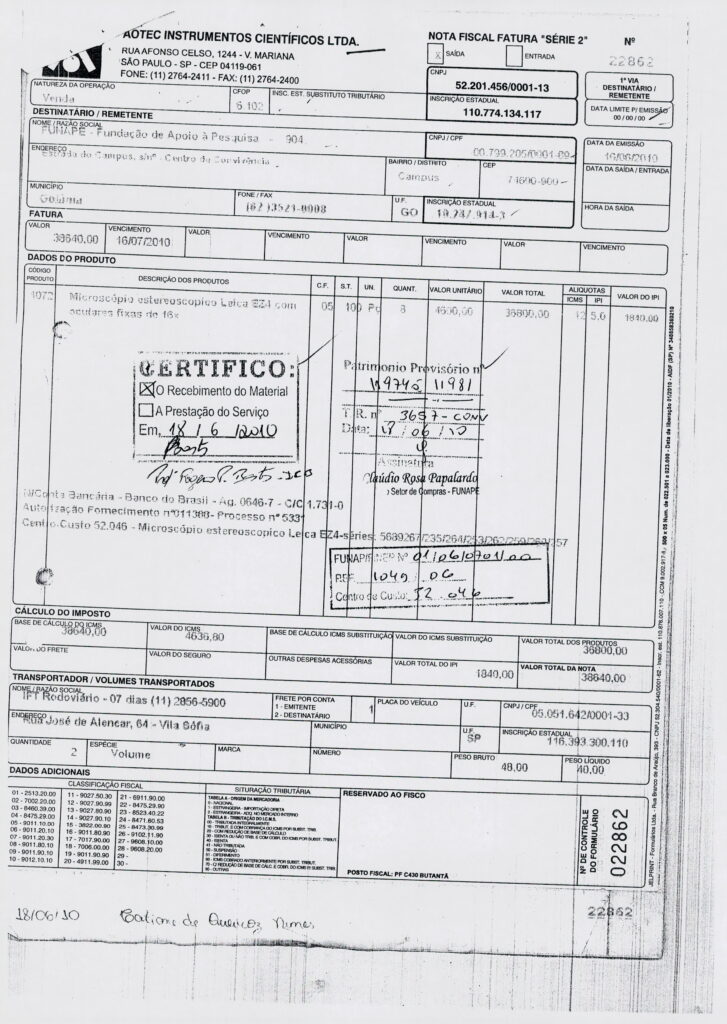 AOTEC INSTRUMENTOS CIENTÍFICOS LTDA.
RUA AFONSO CELSO, 1244 - V. MARIANA
SÃO PAULO - SP - CEP 04119-061
FONE: (11) 2764-2411 - FAX: (11) 2764-2400
NOTA FISCAL FATURA "SÉRIE 2" Nº
X SAÍDA ENTRADA 22862
CNPJ
52.201.456/0001-13
INSCRIÇÃO ESTADUAL
110.774.134.117
1ª VIA
DESTINATÁRIO /
REMETENTE
DATA LIMITE P/ EMISSÃO
00 / 00 / 00
NATUREZA DA OPERAÇÃO
Venda
CFOP
6.102
INSC. EST. SUBSTITUTO TRIBUTÁRIO
DESTINATÁRIO / REMETENTE
NOME / RAZÃO SOCIAL
FUNAPE - Fundação de Apoio à Pesquisa - 904
CNPJ / CPF
00.799.205/0001-89
DATA DA EMISSÃO
16/06/2010
ENDEREÇO
Estrada do Campus, s/nº - Centro de Convivência
BAIRRO / DISTRITO
Campus
CEP
74690-900
DATA DA SAÍDA / ENTRADA
MUNICÍPIO
Goiânia
FONE / FAX
(62)3521-0008
U.F.
GO
INSCRIÇÃO ESTADUAL
HORA DA SAÍDA
FATURA
VALOR VENCIMENTO VALOR VENCIMENTO VALOR VENCIMENTO VALOR VENCIMENTO
38640,00 16/07/2010
DADOS DO PRODUTO
CÓDIGO PRODUTO DESCRIÇÃO DOS PRODUTOS C.F. S.T. UN. QUANT. VALOR UNITÁRIO VALOR TOTAL ALIQUOTAS ICMS IPI VALOR DO IPI
4072 Microscópio estereoscopico Leica EZ4 com 05 100 Pç 8 4600,00 36800,00 12 5.0 1840,00
oculares fixas de 16x
CERTIFICO:
X O Recebimento do Material
A Prestação do Serviço
Em, 18 / 6 / 2010
Patrimonio Provisório nº
119746 11981
T. R. nº 3657 - CONV
Data: 18 / 06 / 10
Assinatura
Claudio Rosa Papalardo
Setor de Compras - FUNAPE
N/Conta Bancária - Banco do Brasil - Ag. 0646-7 - C/C 1.731-0
Autorização Fornecimento nº011388- Processo nº 533
Centro Custo 52.046 - Microscópio estereoscopico Leica EZ4-séries: 5689267/235/264/253/262/259/260/257
FUNAPE/REP Nº 01/06/0701/00
REF. 1049 / 06
Centro de Custo: 52.046
CÁLCULO DO IMPOSTO
BASE DE CÁLCULO DO ICMS VALOR DO ICMS BASE DE CÁLCULO ICMS SUBSTITUIÇÃO VALOR DO ICMS SUBSTITUIÇÃO VALOR TOTAL DOS PRODUTOS
38640,00 4636,80 36800,00
VALOR DO FRETE VALOR DO SEGURO OUTRAS DESPESAS ACESSÓRIAS VALOR TOTAL DO IPI VALOR TOTAL DA NOTA
1840,00 38640,00
TRANSPORTADOR / VOLUMES TRANSPORTADOS
NOME / RAZÃO SOCIAL
IFT Rodoviário - 07 dias (11) 2856-5900
FRETE POR CONTA
1 - EMITENTE
2 - DESTINATÁRIO
1
PLACA DO VEÍCULO
U.F.
CNPJ / CPF
05.051.642/0001-33
ENDEREÇO
Rua José de Alencar, 64 - Vila Sófia
MUNICÍPIO
U.F.
SP
INSCRIÇÃO ESTADUAL
116.393.300.110
QUANTIDADE ESPÉCIE MARCA NÚMERO PESO BRUTO PESO LÍQUIDO
2 Volume 48,00 40,00
DADOS ADICIONAIS
CLASSIFICAÇÃO FISCAL
01 - 2513.20.00 11 - 9027.50.30 21 - 6911.90.00
02 - 7002.20.00 12 - 9027.90.99 22 - 8475.29.90
03 - 8460.39.00 13 - 9027.90.90 23 - 8523.40.22
04 - 8475.29.00 14 - 9027.90.10 24 - 8471.80.53
05 - 9011.10.00 15 - 3822.00.00 25 - 8473.30.99
06 - 9011.20.10 16 - 9011.80.90 26 - 9102.11.10
07 - 9011.20.30 17 - 7017.90.00 27 - 9608.10.00
08 - 9011.80.10 18 - 7006.00.00 28 - 9608.20.00
09 - 9011.80.90 19 - 9011.90.90 29 -
10 - 9012.10.10 20 - 4911.99.00 30 -
SITURAÇÃO TRIBUTÁRIA
TABELA A - ORIGEM DA MERCADORIA
0 - NACIONAL
1 - ESTRANGEIRA - IMPORTAÇÃO DIRETA
2 - ESTRANGEIRA - ADQ. NO MERCADO INTERNO
RESERVADO AO FISCO
POSTO FISCAL: PF C430 BUTANTÃ
Nº DE CONTROLE
DO FORMULÁRIO
022862
22862
18/06/10 Tatiane de Queiroz Nunes